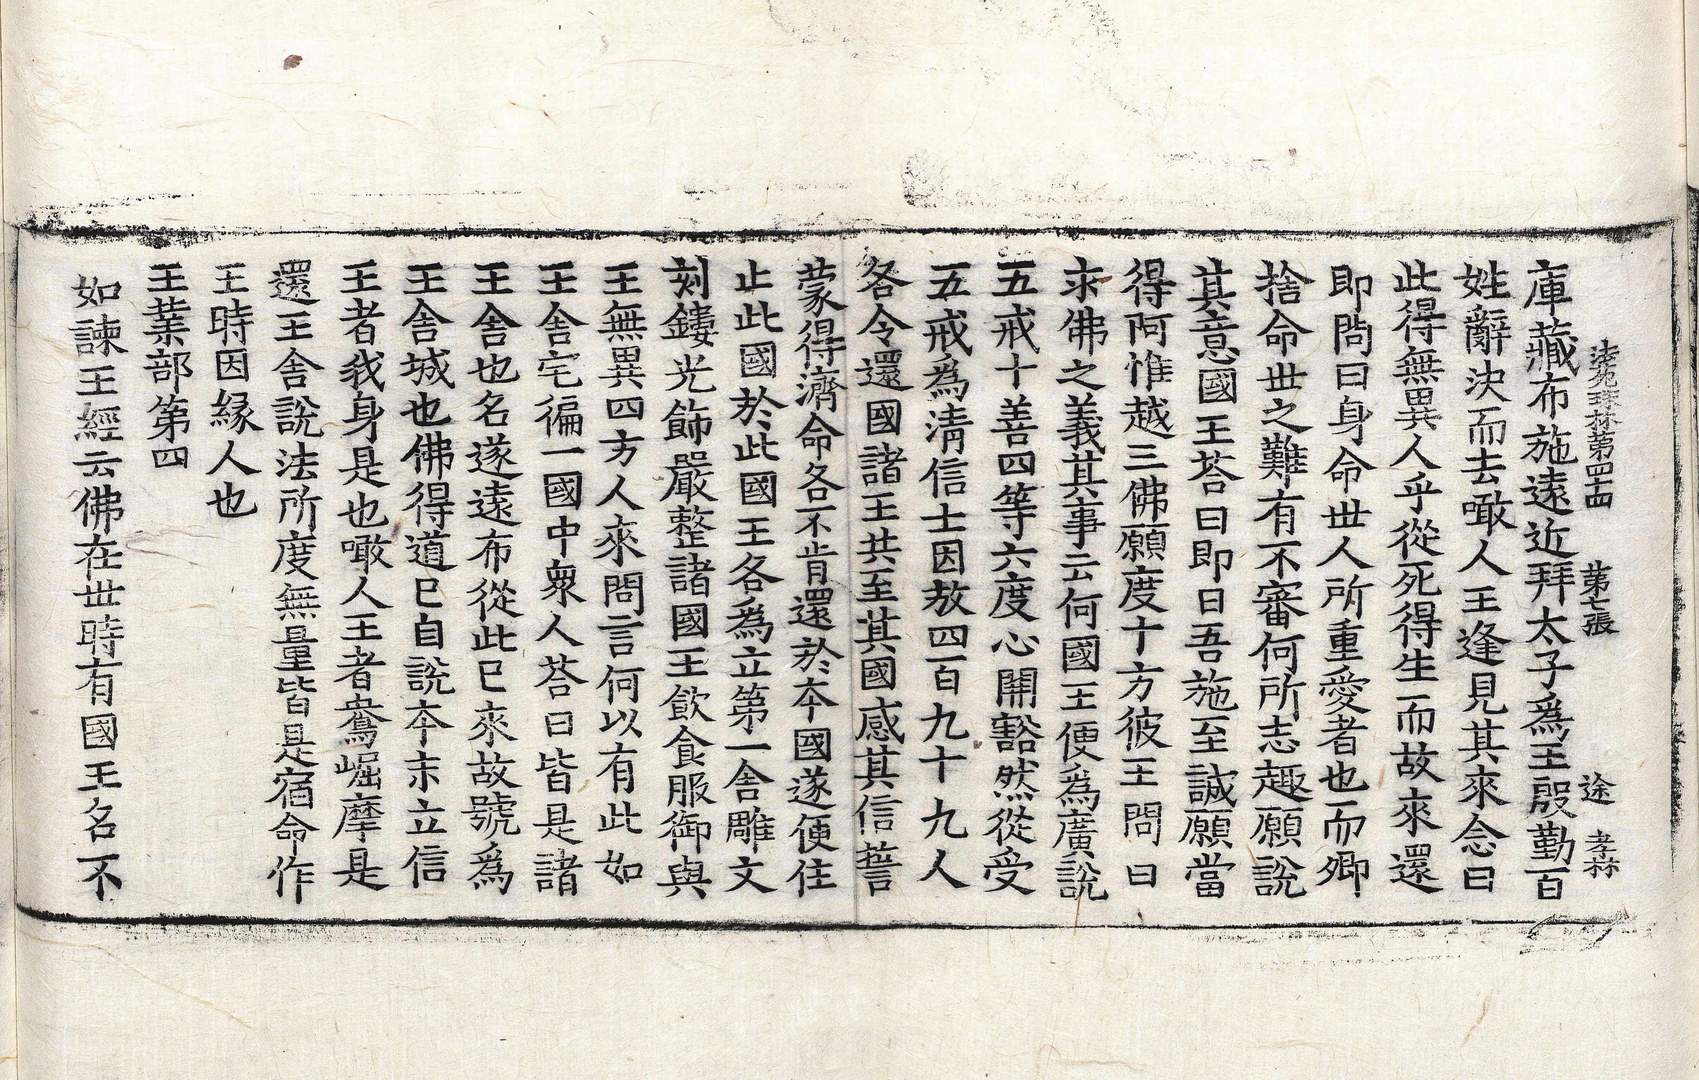 法苑珠林第四十四 第七張 途 孝林
庫藏布施遠近拜太子爲王殷勤百
姓辭決而去噉人王逢見其來念曰
此得無異人乎從死得生而故來還
即問曰身命世人所重愛者也而卿
捨命世之難有不審何所志趣願說
其意國王荅曰即日吾施至誠願當
得阿惟越三佛願度十方彼王問曰
求佛之義其事云何國王便爲廣說
五戒十善四等六度心開豁然從受
五戒爲清信士因放四百九十九人
各令還國諸王共至其國感其信誓
蒙得濟命各不肯還於本國遂便住
止此國於此國王各爲立第一舍雕文
刻鏤光飾嚴整諸國王飲食服御與
王無異四方人來問言何以有此如
王舍宅徧一國中衆人荅曰皆是諸
王舍也名遂遠布從此已來故號爲
王舍城也佛得道已自說本末立信
王者我身是也噉人王者鴦崛摩是
還王舍說法所度無量皆是宿命作
王時因緣人也
王業部第四
如諫王經云佛在世時有國王名不